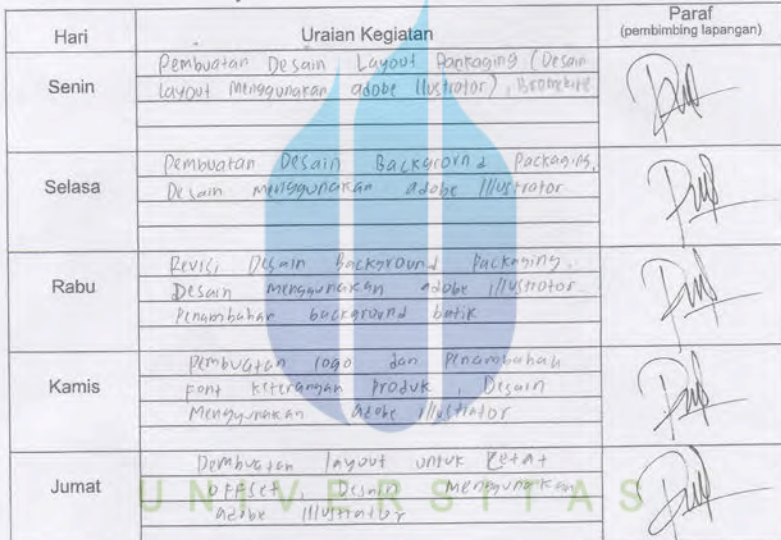 Hari Uraian Kegiatan Paraf
(pembimbing lapangan)
Senin
Pembuatan Desain Layout Packaging (Desain
layout menggunakan adobe illustrator),
Selasa
Pembuatan Desain Background Packaging,
Desain menggunakan adobe illustrator
Rabu
Revisi Desain Background Packaging.
Desain menggunakan adobe illustrator
Penambahan background batik
Kamis
Pembuatan logo dan Penambahan
Font keterangan Produk, Desain
Menggunakan adobe illustrator
Jumat
Pembuatan layout untuk Cetak
OFFset, Desain Menggunakan
adobe illustrator
UNIVERSITAS